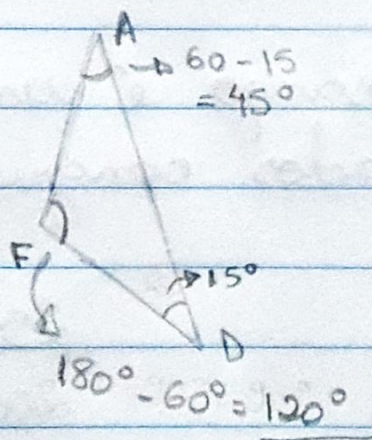 A
→ 60 - 15
= 45°
F
→ 15°
D
180° - 60° = 120°